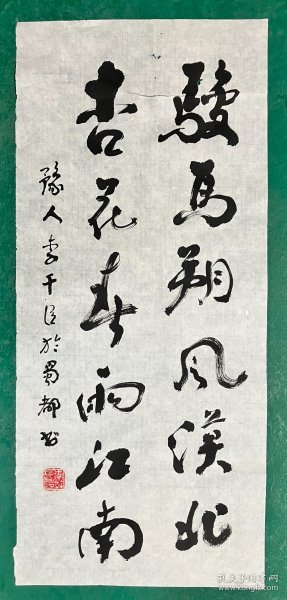 駿馬朔風漠北
杏花春雨江南
豫人李千臣於蜀都書
孔夫子旧书网